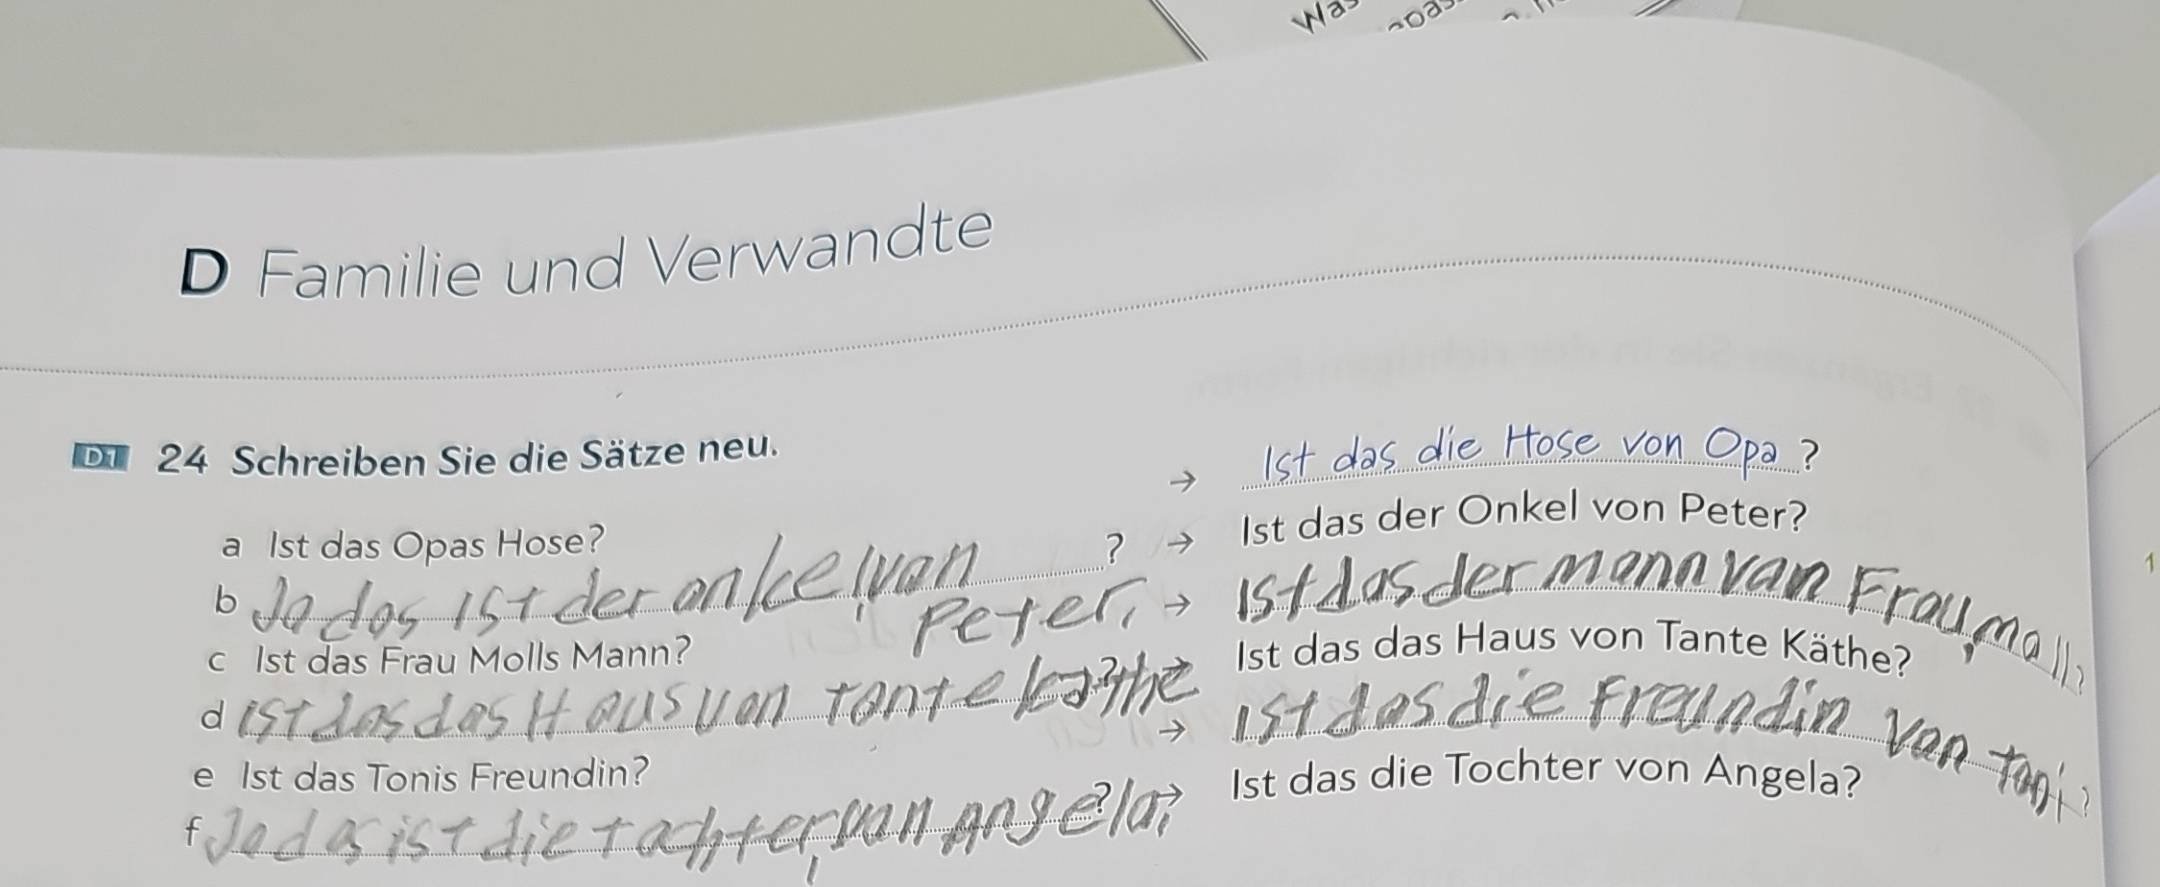 Was
D Familie und Verwandte
D1 24 Schreiben Sie die Sätze neu.
a Ist das Opas Hose? → Ist das die Hose von Opa?
b Ja das ist der onkel van Peter, ? → Ist das der Onkel von Peter?
c Ist das Frau Molls Mann? → Ist das der mann van Frau, Moll?
d ist das das Haus von tante käthe ? → Ist das das Haus von Tante Käthe?
e Ist das Tonis Freundin? → Ist das die Freundin Von toni?
f Ja das ist die tachter van angela, ? → Ist das die Tochter von Angela?
1